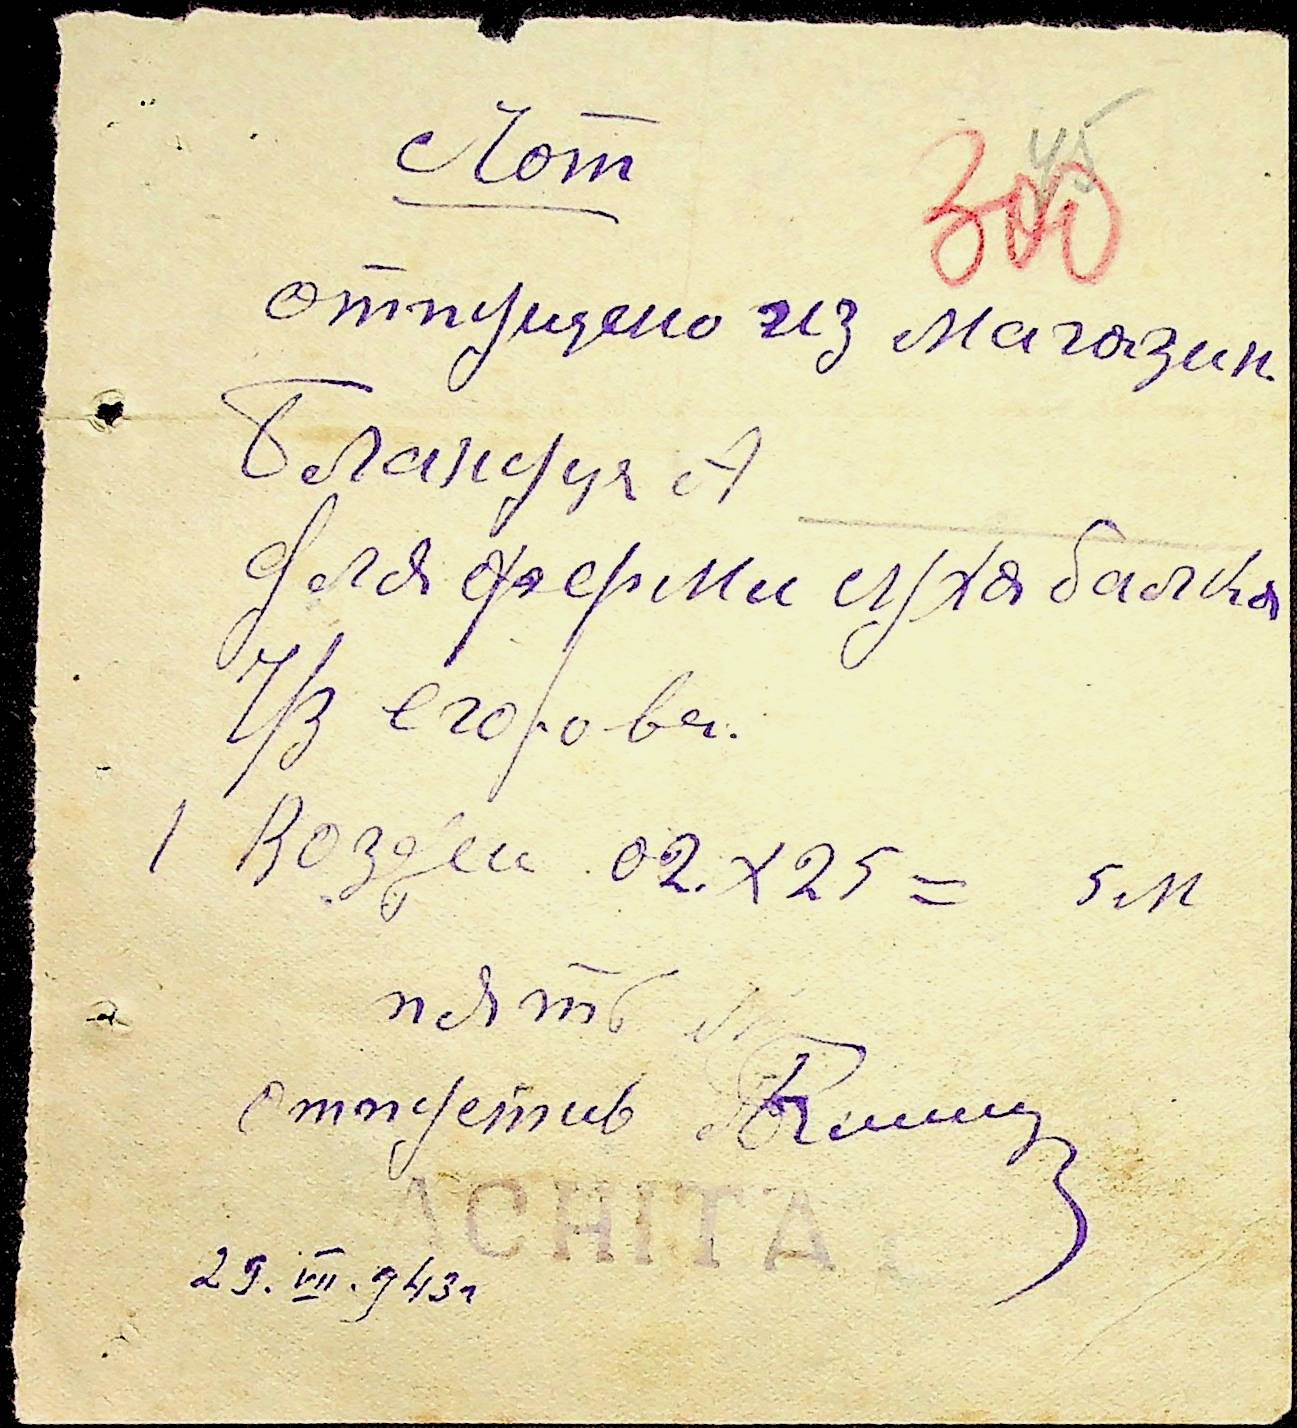 Лот
300
45
отпущено из магазин
Бландуц А
для ферми суха балка
ч/з егорова.
1 возди 02. х 25 = 5 м
пять м
отпустив
ACHITAT
29. VII. 943 г